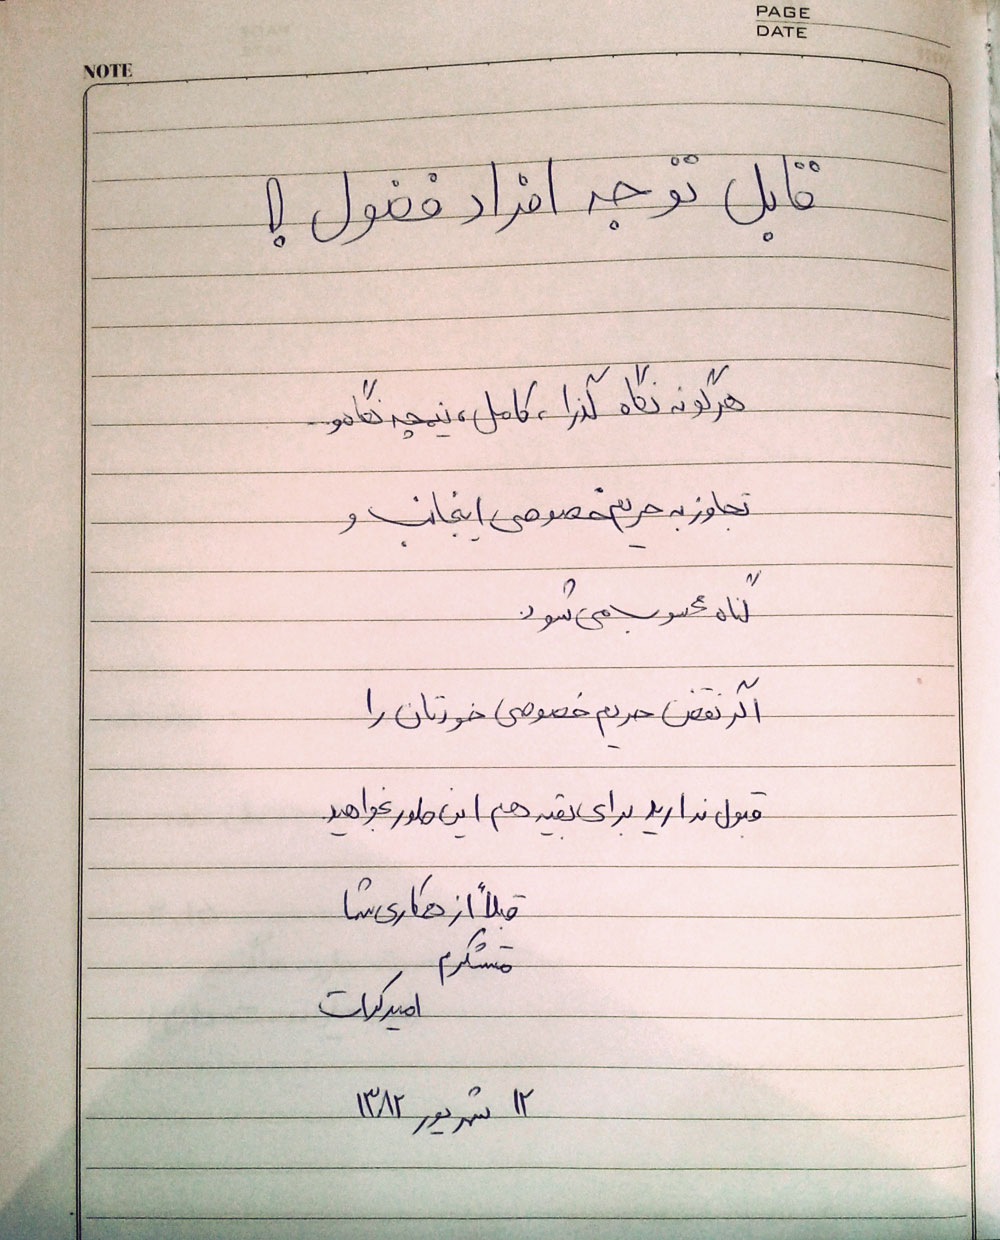 PAGE
DATE
NOTE
قابل توجه افراد فضول !!
هرگونه نگاه گذرا ، کامل ، نیمچه نگاه و...
تجاوز به حریم خصوصی اینجانب و
گناه محسوب می شود.
اگر نقض حریم خصوصی خودتان را
قبول ندارید برای بقیه هم این طور نخواهید.
قبلاً از همکاری شما
متشکرم
امید
۱۲ شهریور ۱۳۸۲